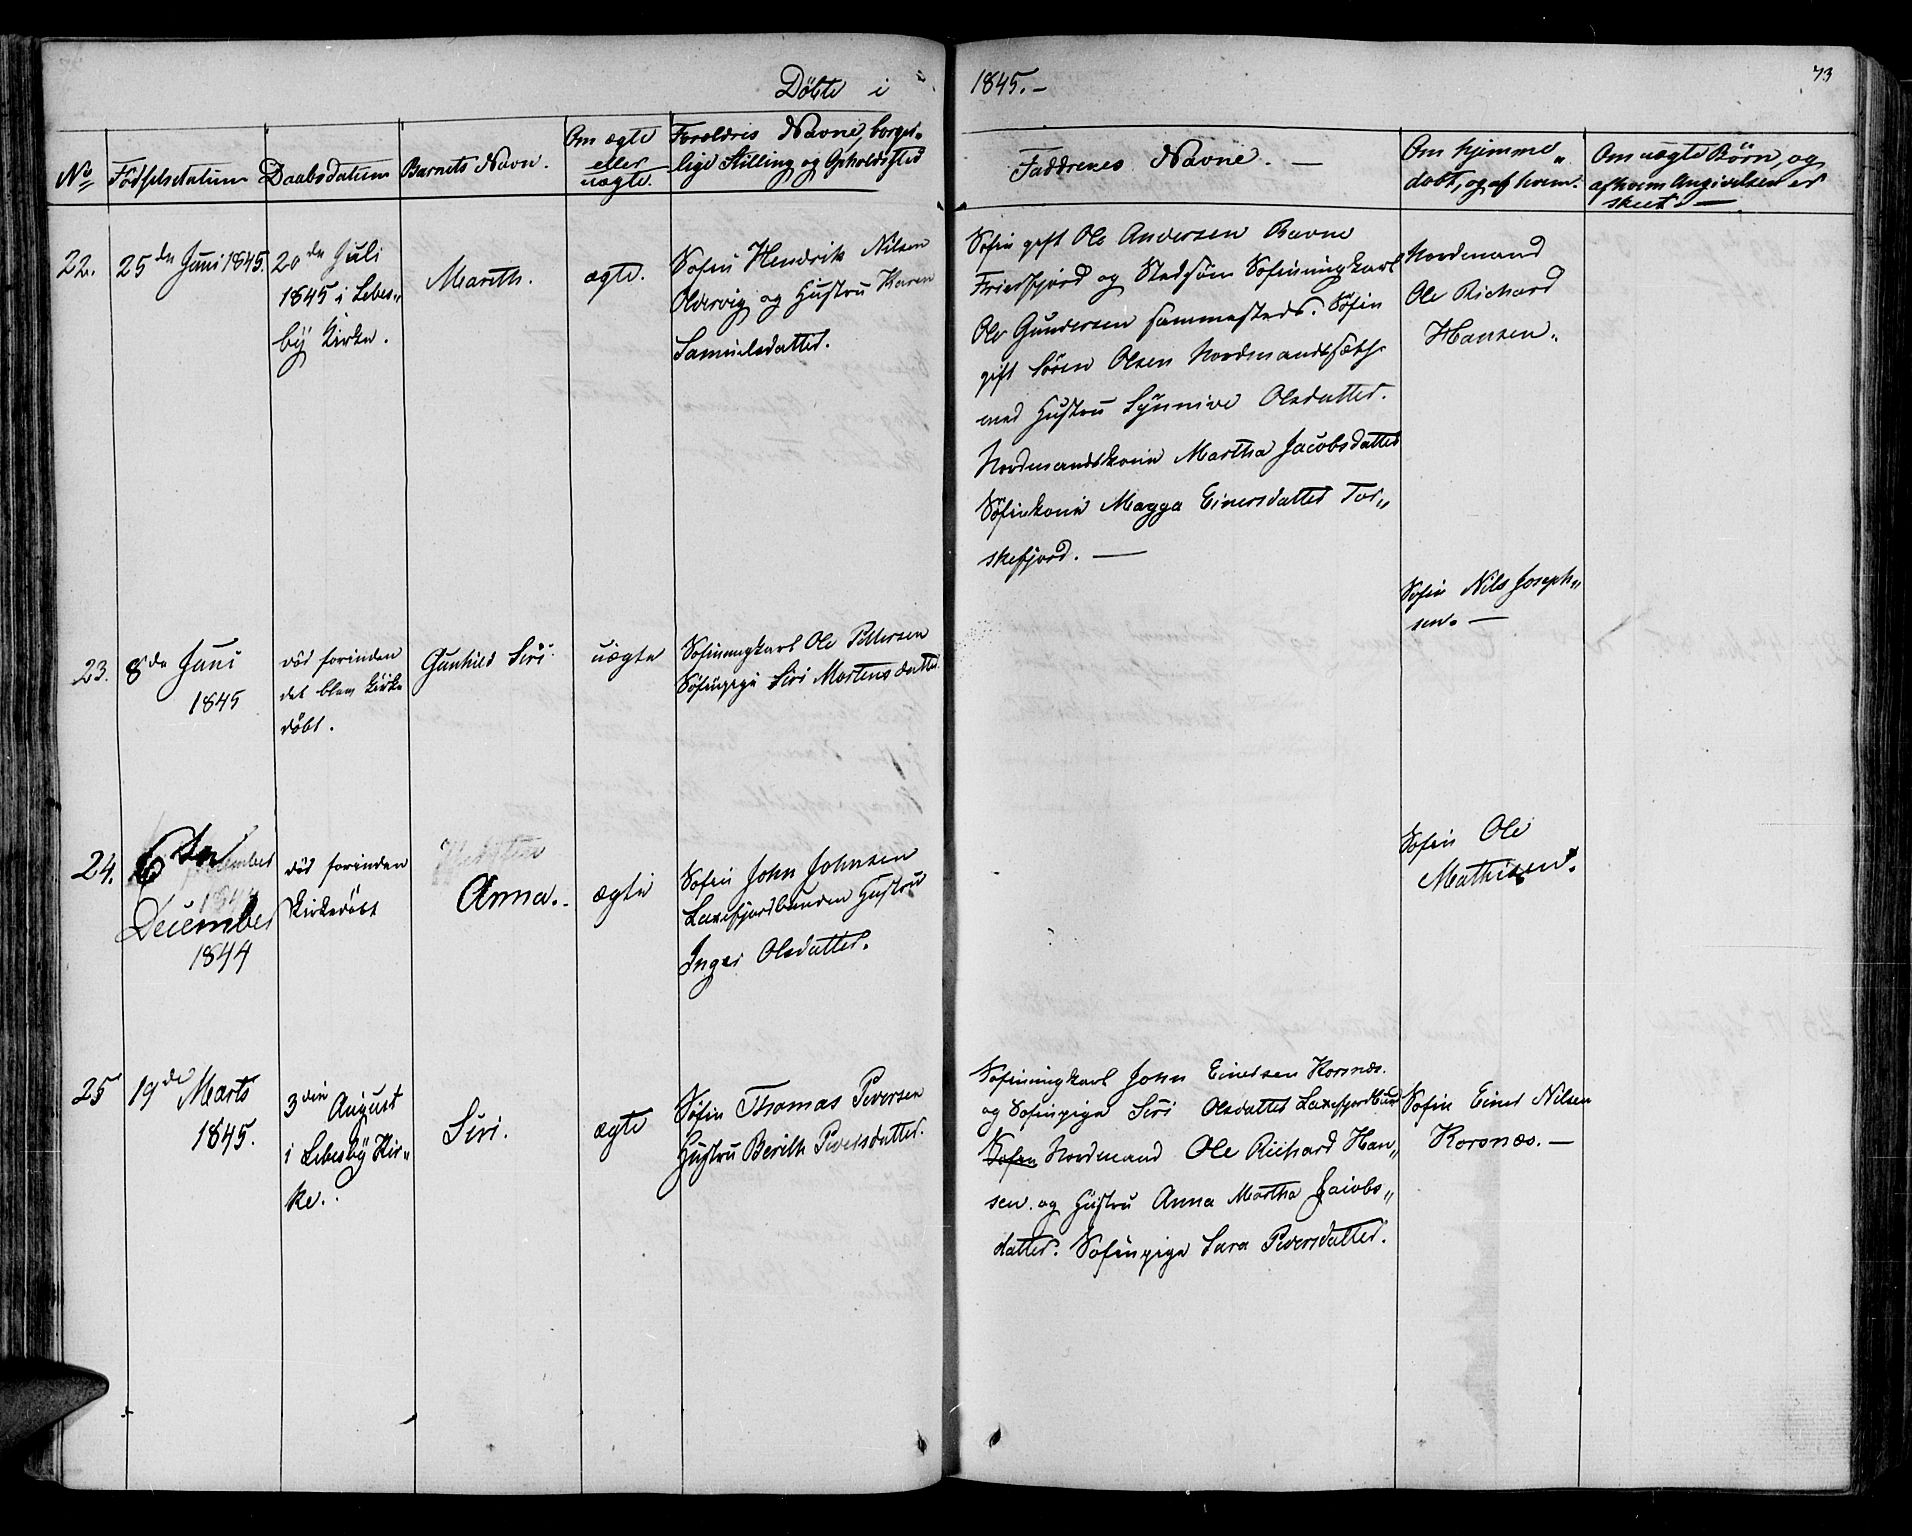 Döbte i 1845.-
73
No
Födselsdatum
Daabsdatum
Barnets Navn.
Om ægte
eller
uægte.
Forældres Navne, borger-
lige Stilling og Opholdssted
Faddrenes Navne. —
Om hjemme-
døbt, og af hvem.
Om uægte Börn, og
af hvem Angivelsen er
skeet. —
22.
25de Juni 1845.
20de Juli
1845 i Lebes-
by Kirke.
Mareth.
ægte.
Söfin Hendrik Nilsen
Oldervig og Hustru Karen
Samuelsdatter.
Söfin gift Ole Andersen Ravne
Friersfjord og Stedsön Söfinungkarl
Ole Gundersen sammesteds. Söfin
gift Sören Olsen Nordmandssæth
med Hustru Synnive Olsdatter.
Nordmandskone Martha Jacobsdatter
Söfinkone Magga Einersdatter Tor-
skefjord. —
Nordmand
Ole Richard
Hansen.
23.
8de Juni
1845
död forinden
det blev kirke
döbt.
Gunhild Siri
uægte
Söfinungkarl Ole Pettersen
Söfinpige Siri Mortensdatter
Söfin Nils Joseph-
sen. —
24.
6te
December
1844
död forinden
Kirkedöbt
Anna.
ægte
Söfin John Johnsen
Laxefjordbunden Hustru
Inger Olsdatter.
Söfin Ole
Mathisen.
25
19de Marts
1845.
3die August
i Lebesby Kir-
ke.
Siri.
ægte
Söfin Thomas Peversen
Hustru Berith Peversdatter.
Söfinungkarl John Einersen Korsnæs.
og Söfinpige Siri Olsdatter Laxefjordbund
Söfin Nordmand Ole Richard Han-
sen. og Hustru Anna Martha Jacobs-
datter. Söfinpige Sara Peversdatter.
Söfin Einer Nilsen
Korsnæs. —